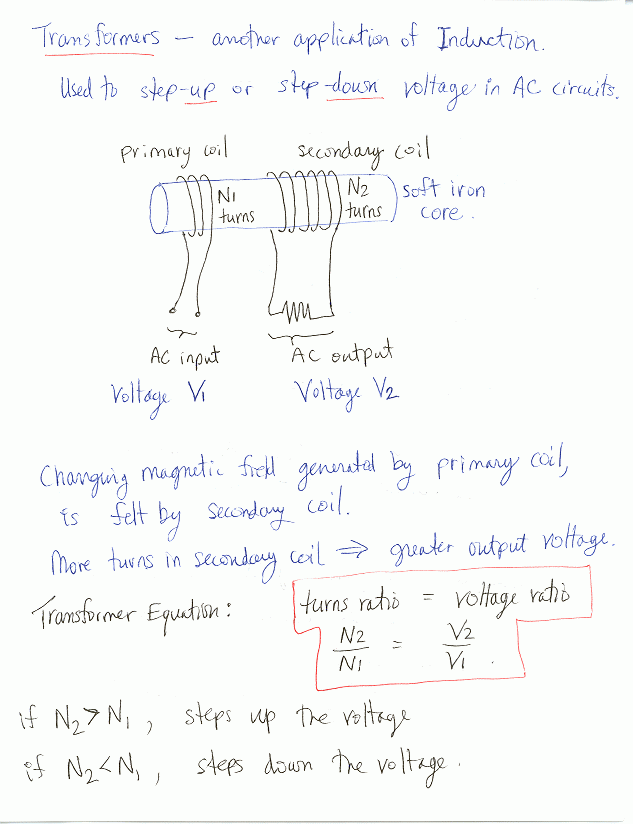 Transformers — another application of Induction.
Used to step-up or step-down voltage in AC circuits.
primary coil secondary coil
N1 turns
N2 turns
soft iron core.
AC input
Voltage V1
AC output
Voltage V2
Changing magnetic field generated by primary coil,
is felt by secondary coil.
More turns in secondary coil ⇒ greater output voltage.
Transformer Equation:
turns ratio = voltage ratio
N2/N1 = V2/V1.
if N2 > N1, steps up the voltage
if N2 < N1, steps down the voltage.